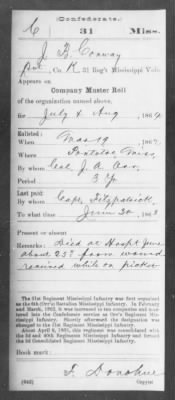 (Confederate.)
C 31 Miss.
J B Conway
Pvt, Co. K, 31 Reg't Mississippi Vols.
Appears on
Company Muster Roll
of the organization named above,
for July & Aug, 1864
Enlisted:
When Mar 19, 1862
Where Pontotoc Miss
By whom Col. J. A. Orr
Period 3 Yr
Last paid:
By whom Capt. Fitzpatrick
To what time June 30, 1863
Present or absent
Remarks: Died at Hospt June
about 25? from wound
received while on picket
The 31st Regiment Mississippi Infantry was first organized
as the 6th (Orr's) Battalion Mississippi Infantry. In February
and March, 1862, it was increased to ten companies and mustered
into the Confederate service as Orr's Regiment Mississippi
Infantry. Shortly afterward the designation was
changed to the 31st Regiment Mississippi Infantry.
About April 9, 1865, this regiment was consolidated with
the 3d and 40th Regiments Mississippi Infantry and formed
the 3d Consolidated Regiment Mississippi Infantry.
Book mark:
(642)
Donohue
Copyist